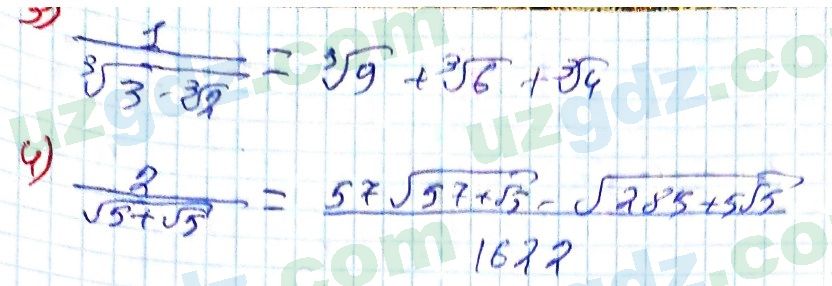 3) 1/(∛3 - ∛2) = ∛9 + ∛6 + ∛4
4) 2/√(5+√5) = (57√(57+√5) - √(285+5√5))/1622
uzgdz.com